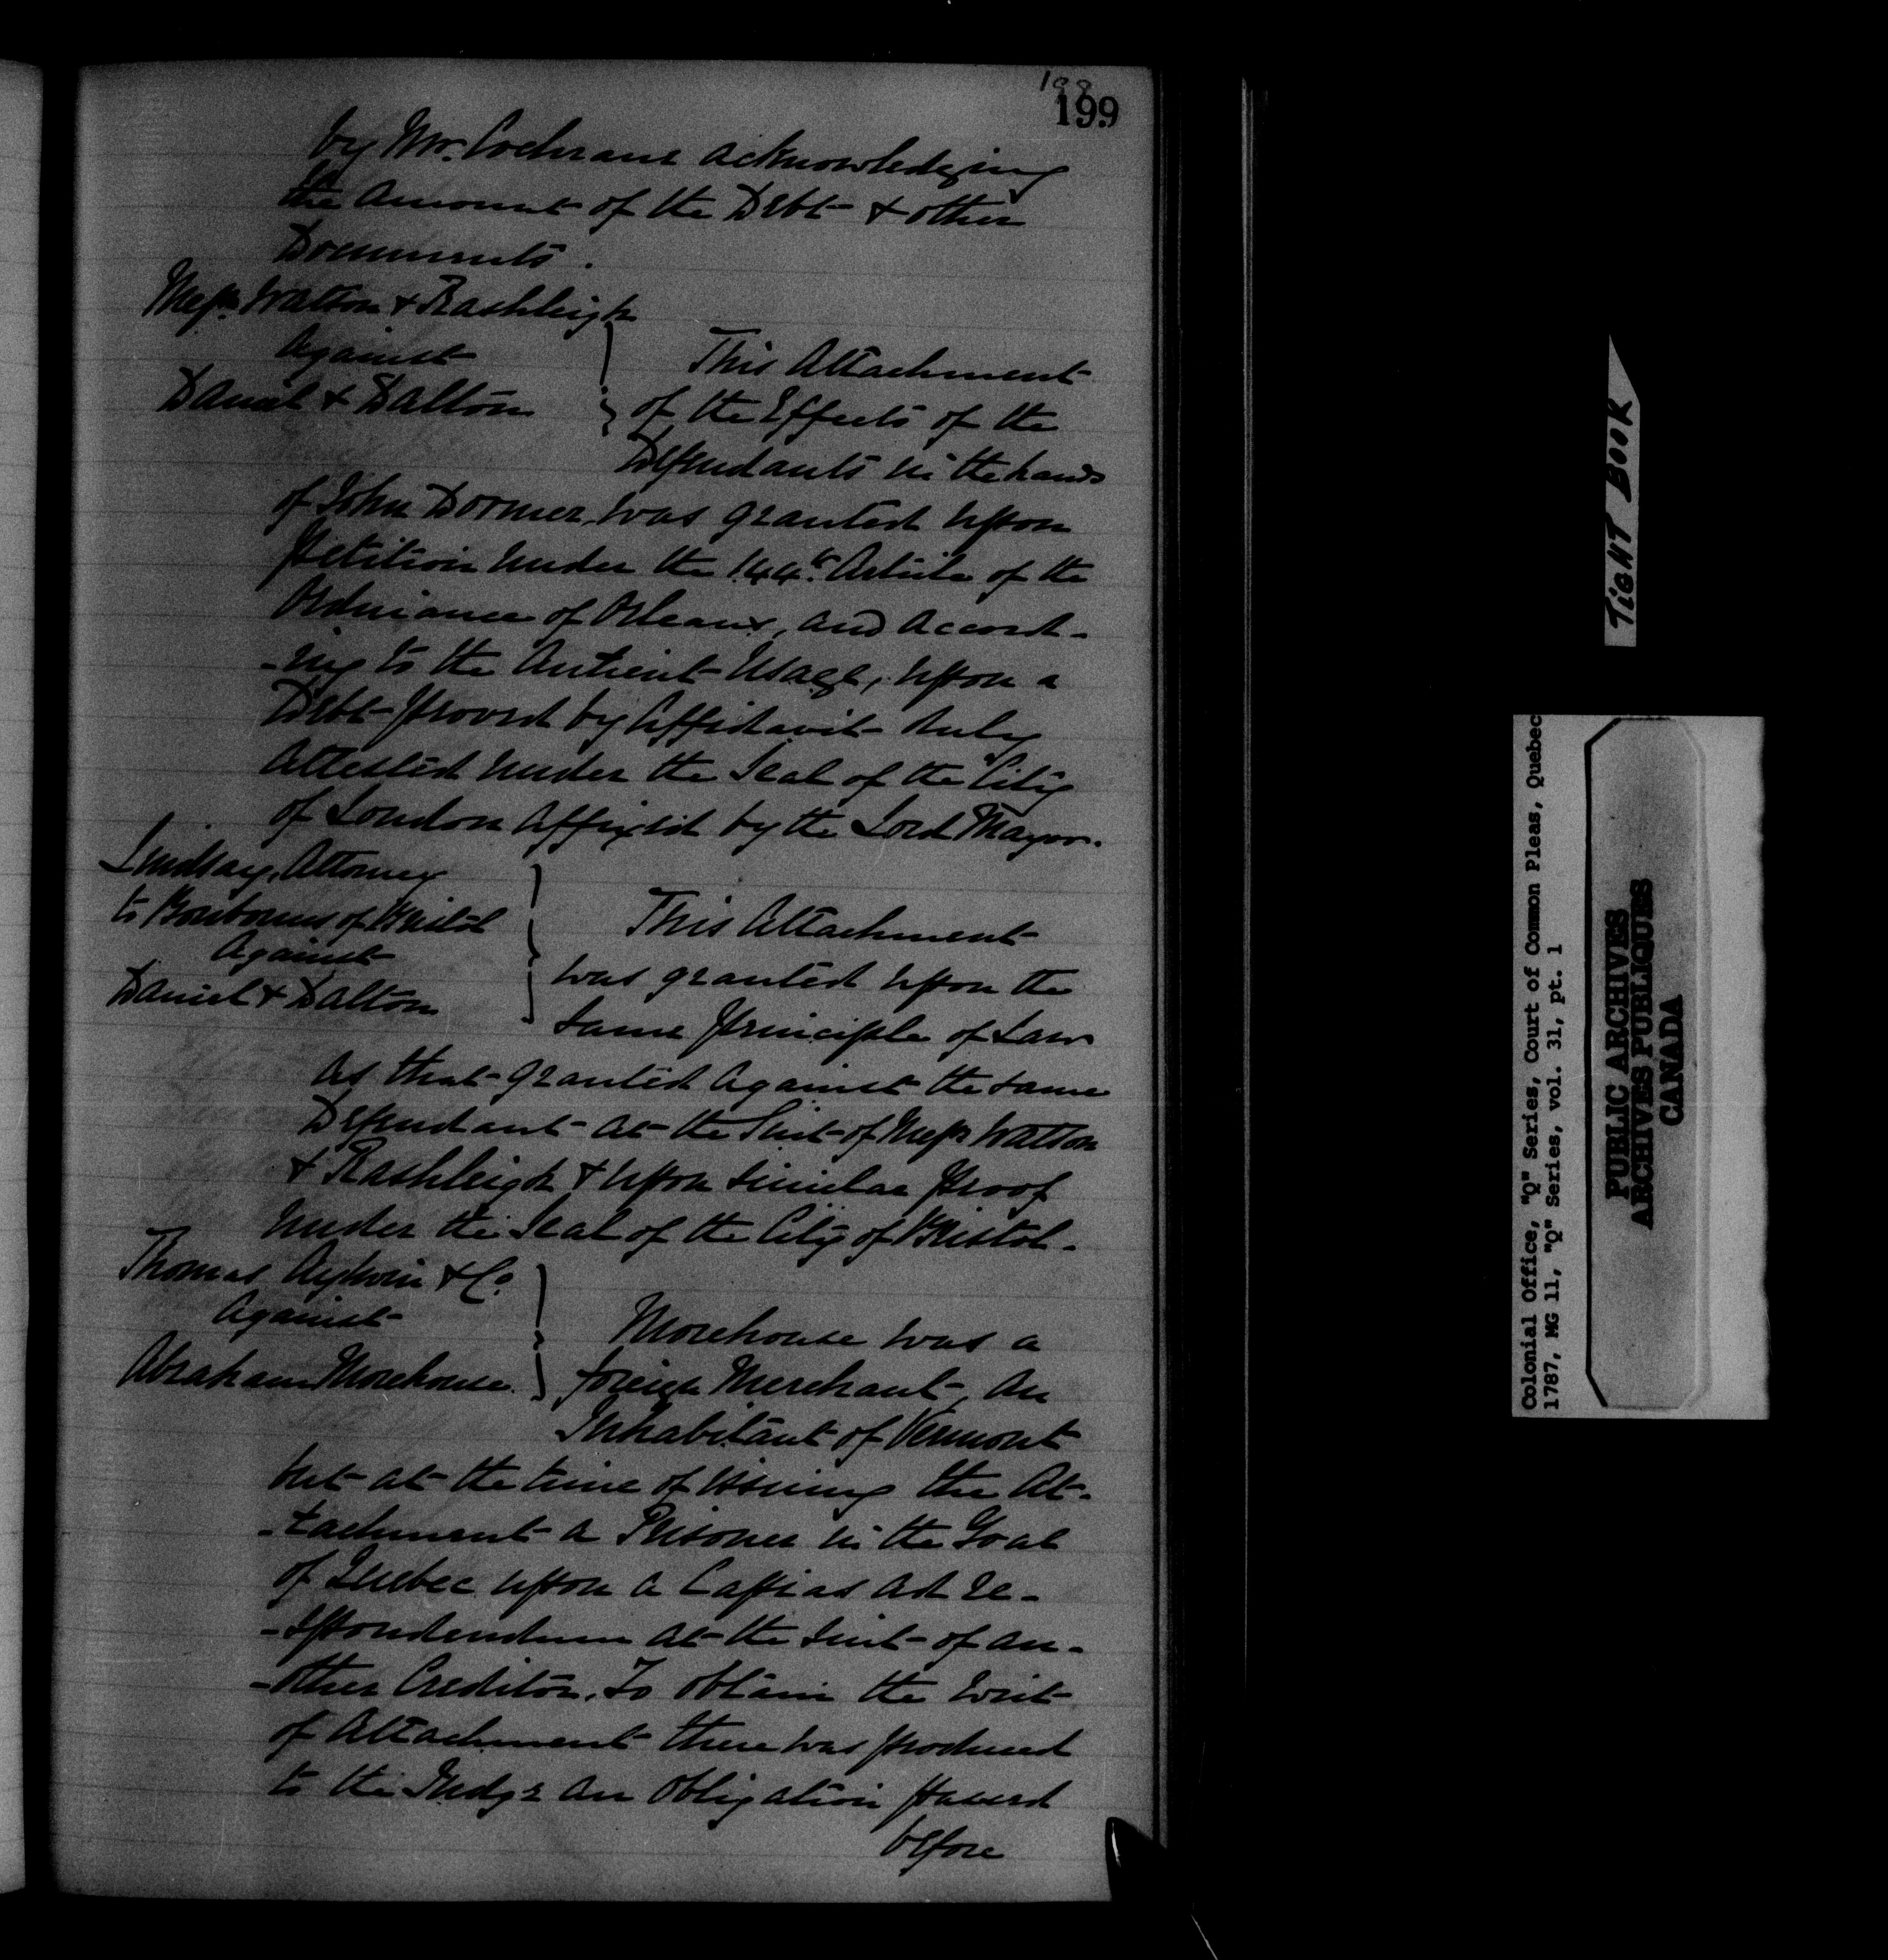 198
199
by Mr. Cochrane acknowledging
the Amount of the Debt & other
Documents.
Messrs. Watson & Rashleigh
Against
Daniel & Dalton
This Attachment
of the Effects of the
Defendants in the hands
of John Dormer, was granted upon
Petition under the 144th. Article of the
Ordinance of Orleans, and accord-
-ing to the Antient Usage, upon a
Debt proved by Affidavit duly
attested under the Seal of the City
of London affixed by the Lord Mayor.
Lindsay, Attorney
to of Bristol
Against
Daniel & Dalton
This Attachment
was granted upon the
same Principle of Law
as that granted against the same
Defendant at the Suit of Messrs Watson
& Rashleigh & upon similar Proof
under the Seal of the City of Bristol.
Thomas Aylwin & Co.
Against
Abraham Morehouse.
Morehouse was a
foreign Merchant, an
Inhabitant of Vermont
but at the time of issuing the At-
-tachment a Prisoner in the Goal
of Quebec upon a Capias ad re-
-spondendum at the suit of an-
-other Creditor. To obtain the Writ
of Attachment there was produced
to the Judge an Obligation passed
before
TIGHT BOOK
Colonial Office, "Q" Series, Court of Common Pleas, Quebec
1787, MG 11, "Q" Series, vol. 31, pt. 1
PUBLIC ARCHIVES
ARCHIVES PUBLIQUES
CANADA